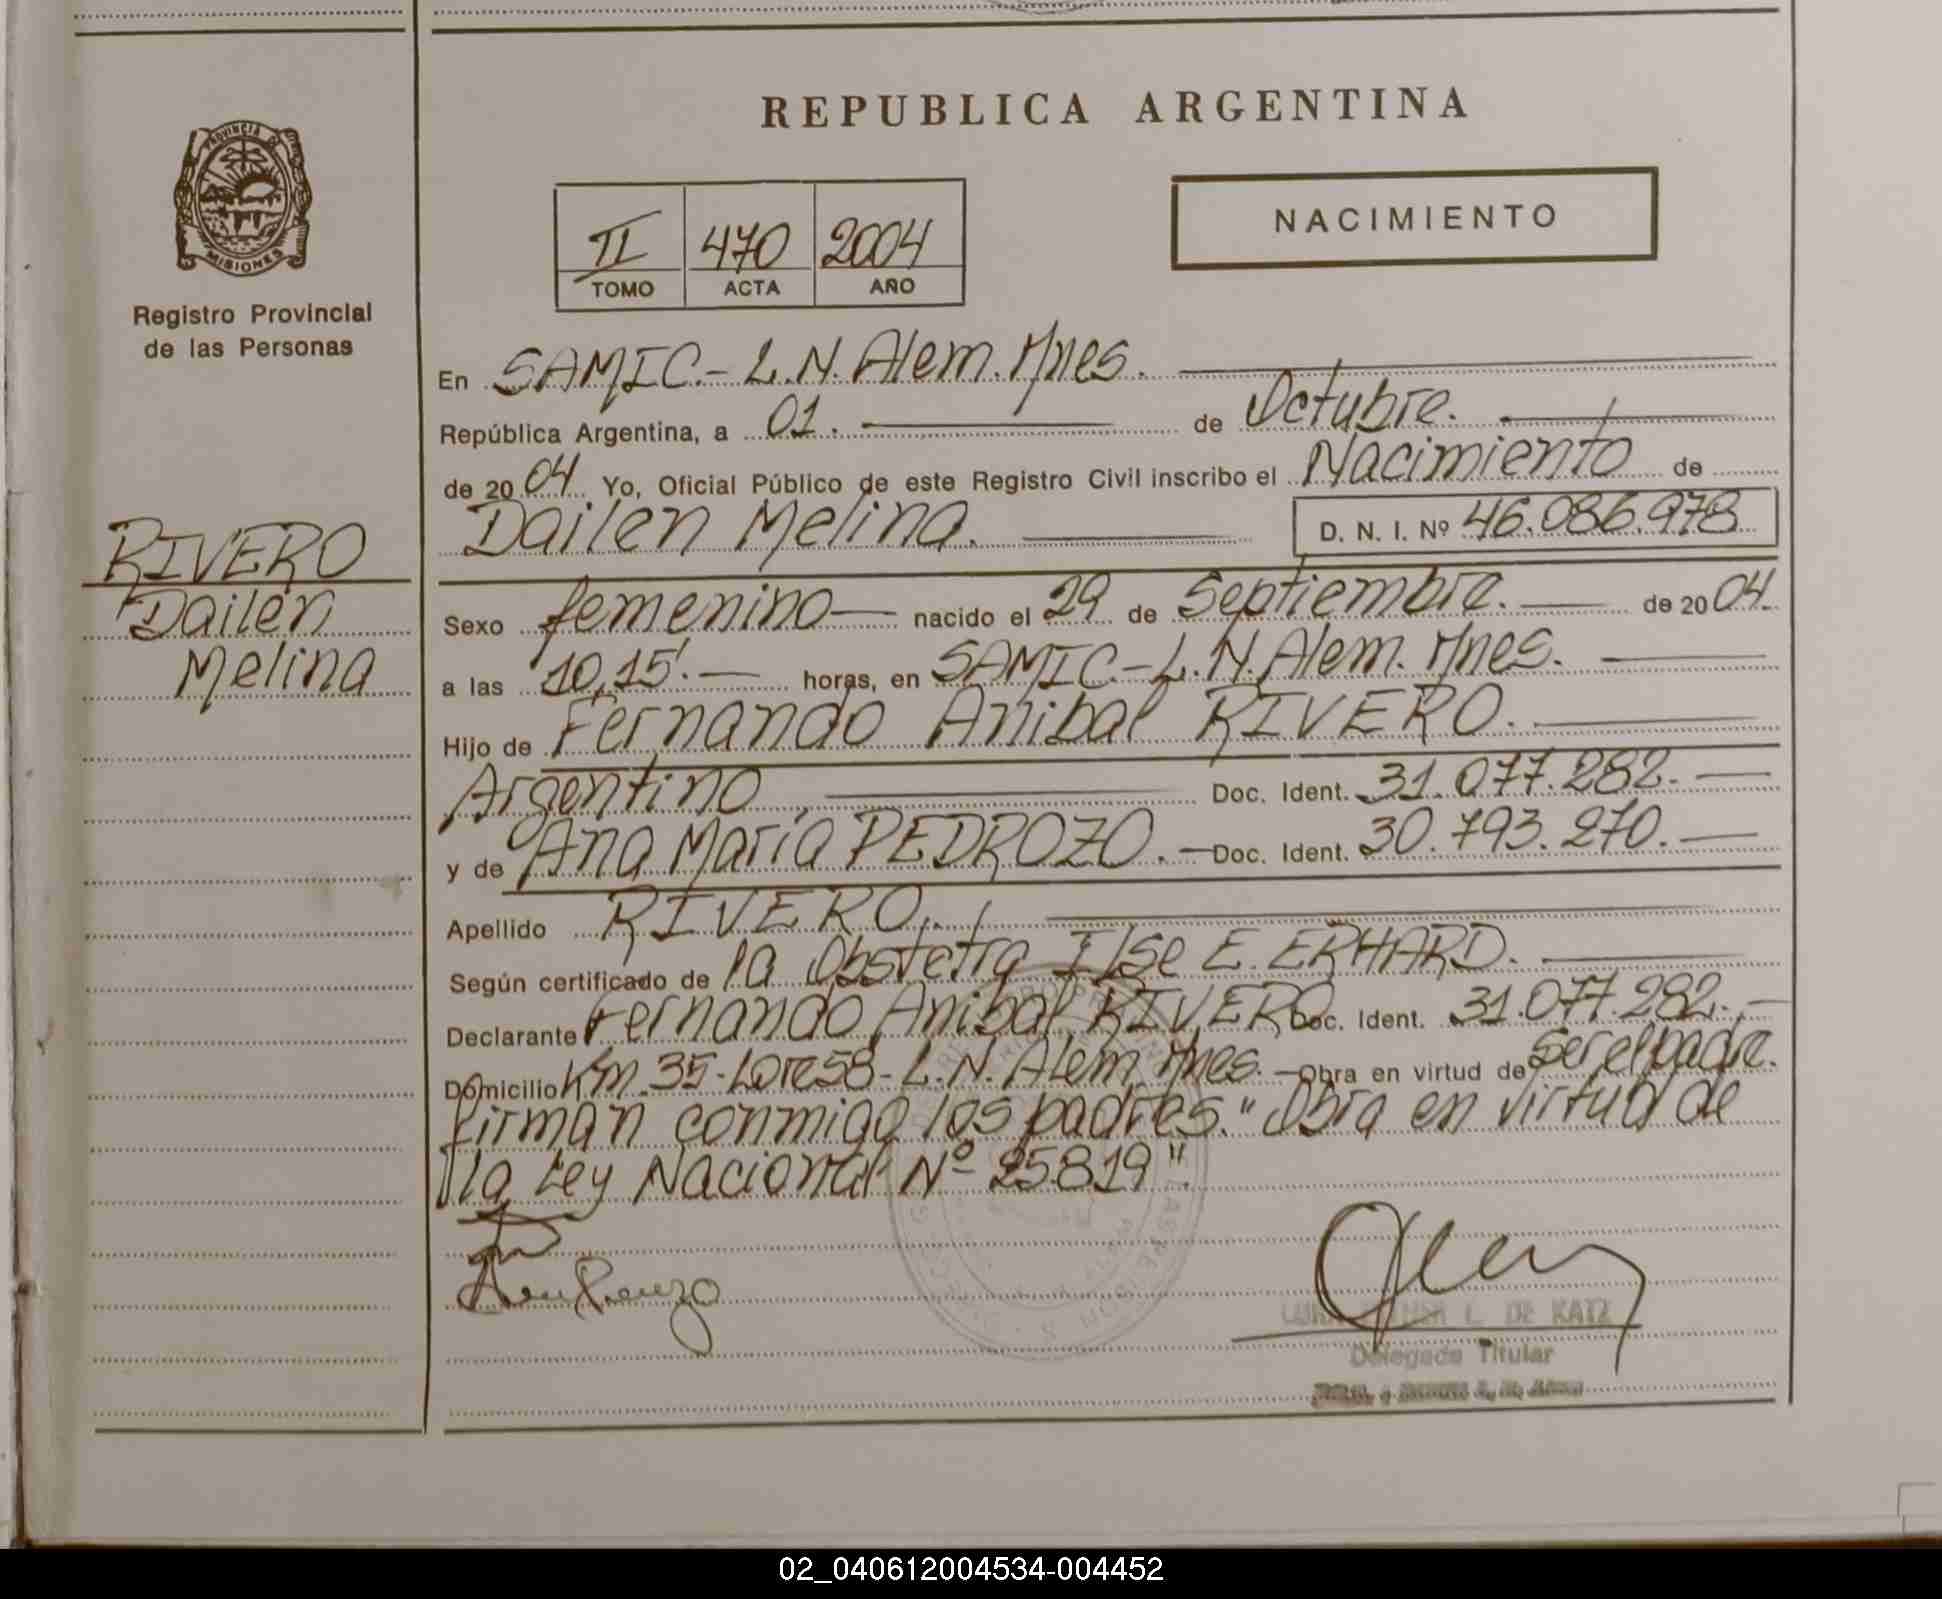 PROVINCIA DE
MISIONES
Registro Provincial
de las Personas
RIVERO
Dailen
Melina
REPUBLICA ARGENTINA
NACIMIENTO
II 470 2004
TOMO ACTA AÑO
En SAMIC.- L.N. Alem. Mnes.
República Argentina, a 01. de Octubre.
de 2004 Yo, Oficial Público de este Registro Civil inscribo el Nacimiento de
Dailen Melina. D. N. I. Nº 46.086.978
Sexo femenino nacido el 29 de Septiembre. de 2004.
a las 10,15'. horas, en SAMIC.- L.N. Alem. Mnes.
Hijo de Fernando Anibal RIVERO.
Argentino Doc. Ident. 31.077.282.
y de Ana María PEDROZO. Doc. Ident. 30.793.270.
Apellido RIVERO.
Según certificado de la Obstetra Ilse E. ERHARD.
Declarante Fernando Anibal RIVERO Doc. Ident. 31.077.282.
Domicilio Km. 35-Lote 58- L.N. Alem Mnes. Obra en virtud de ser el padre.
firman conmigo los padres. "Obra en virtud de
la Ley Nacional Nº 25819"
L. DE KATZ
Delegada Titular
02_040612004534-004452